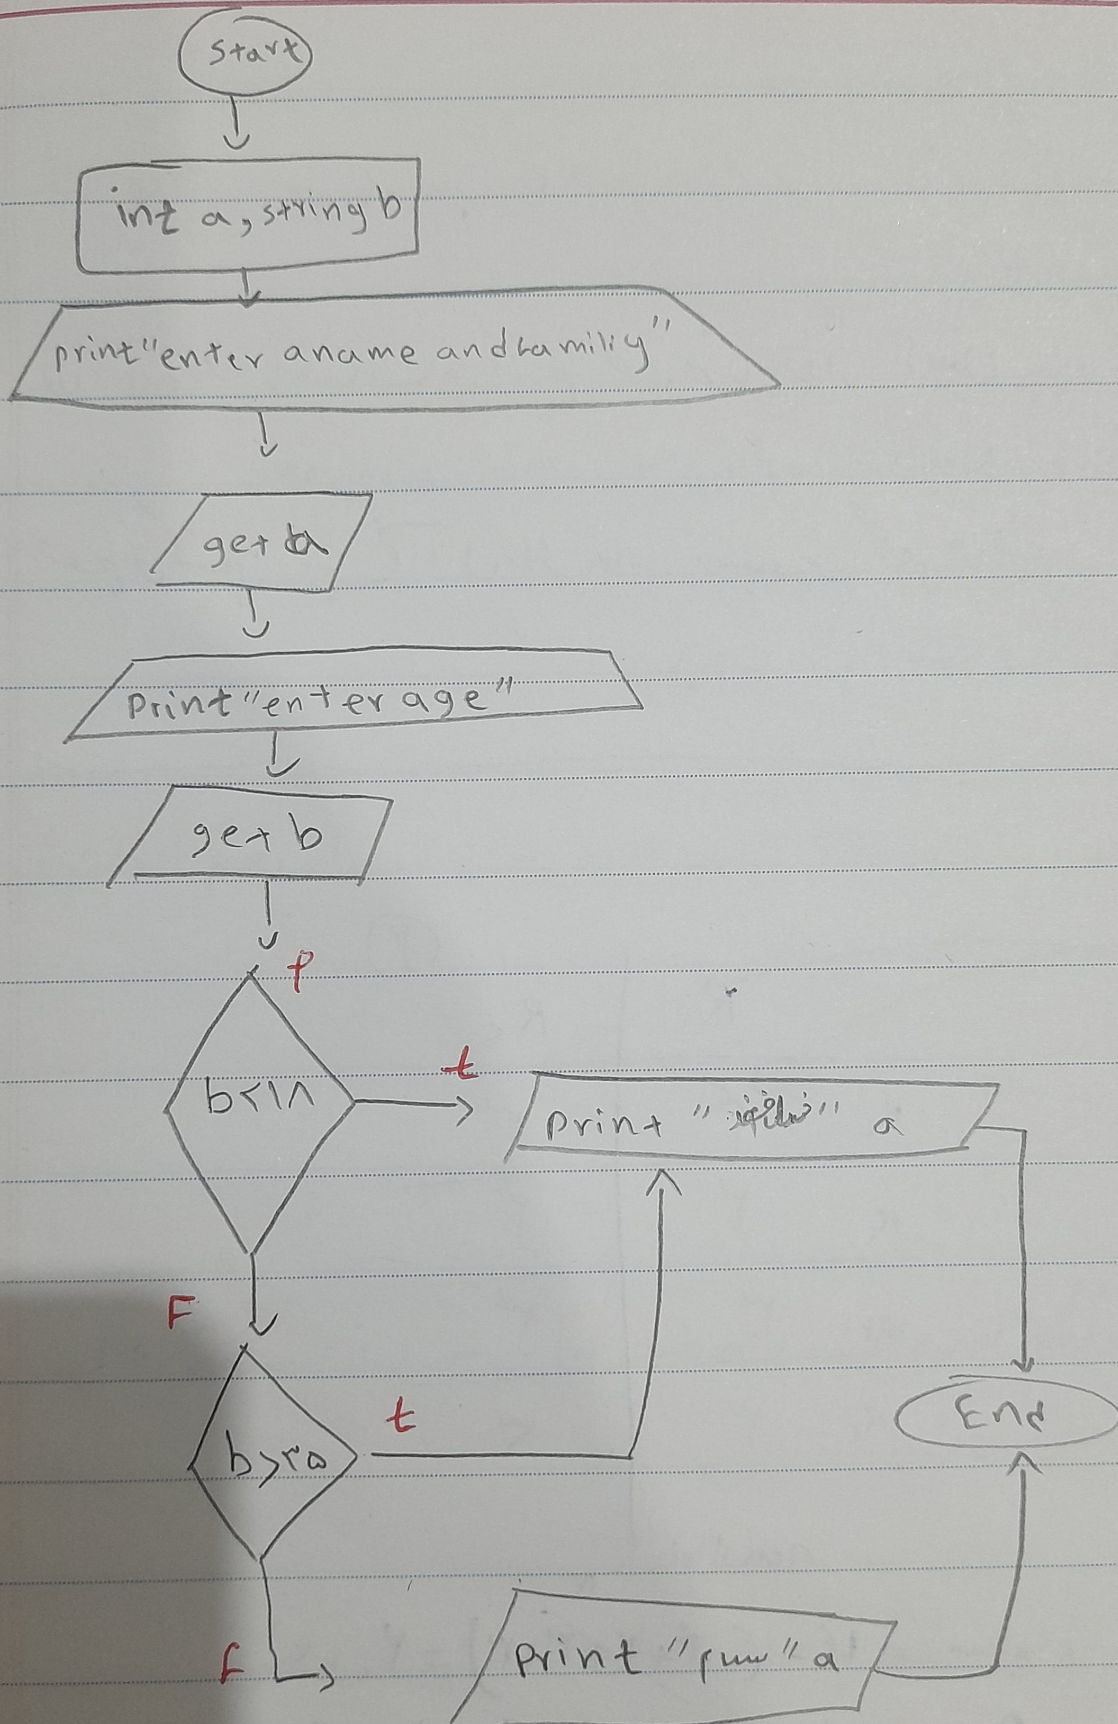 Start
int a, string b
print "enter a name and familiy"
get a
print "enter age"
get b
b<۱۸
t
print " " a
F
b>۲۵
t
End
F
print " " a